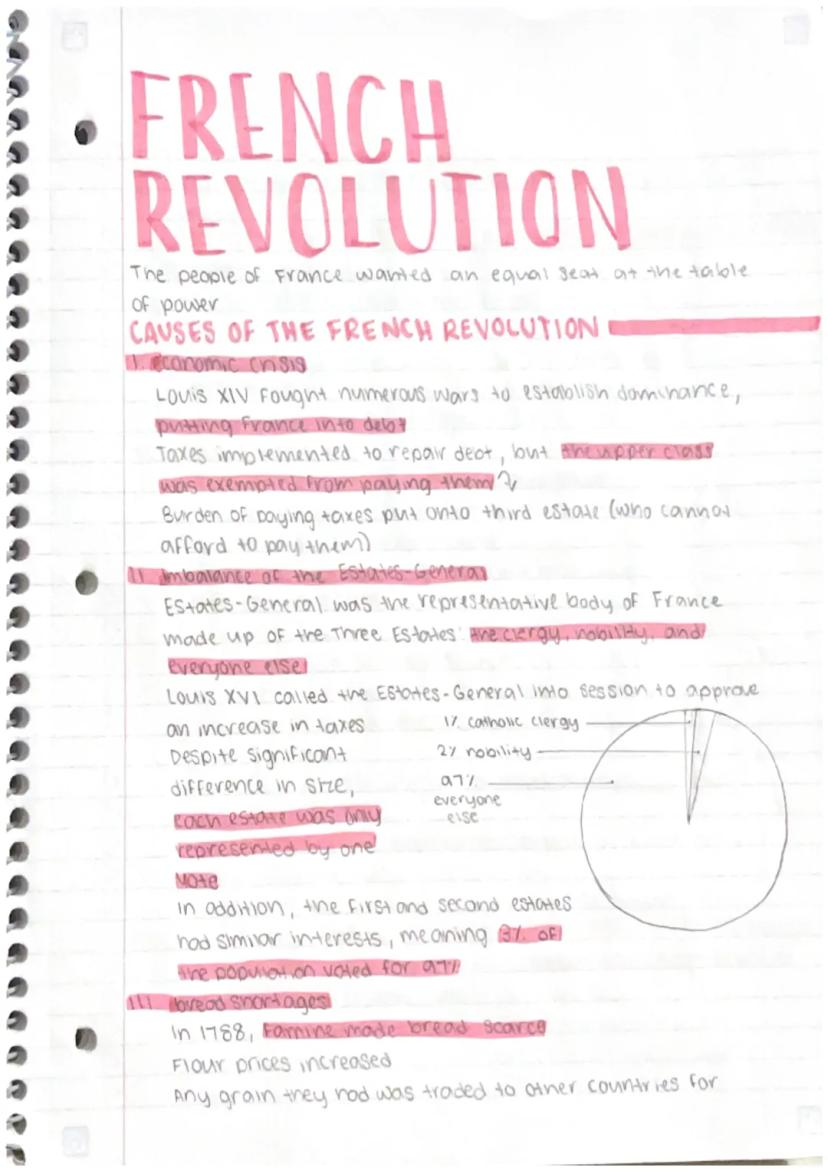 FRENCH
REVOLUTION
The people of France wanted an equal seat at the table
of power
CAUSES OF THE FRENCH REVOLUTION
I. economic crisis
Louis XIV fought numerous wars to establish dominance,
putting France into debt
Taxes implemented to repair debt, but the upper class
was exempted from paying them
Burden of paying taxes put onto third estate (who cannot
afford to pay them)
II. imbalance of the Estates-General
Estates-General was the representative body of France
made up of the Three Estates: the clergy, nobility, and
everyone else
Louis XVI called the Estates-General into session to approve
an increase in taxes
1% catholic clergy
Despite significant
2% nobility
difference in size,
97%
everyone
else
each estate was only
represented by one
vote
In addition, the first and second estates
had similar interests, meaning 3% of
the population voted for 97%
III. bread shortages
In 1788, famine made bread scarce
Flour prices increased
Any grain they had was traded to other countries for